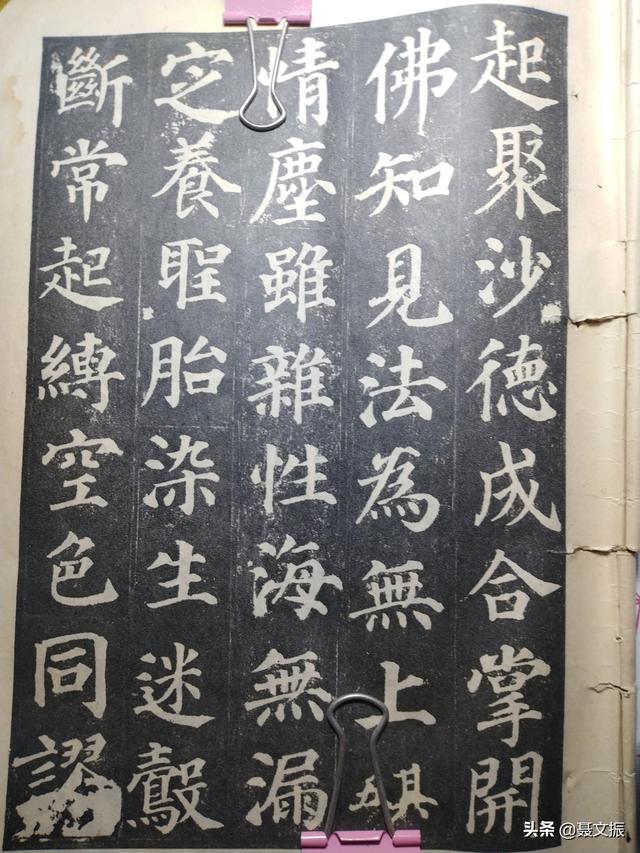 起聚沙德成合掌開
佛知見法為無上其五
情塵雖雜性海無漏
定養聖胎染生迷鷇
斷常起縛空色同謬
头条 @聂文振